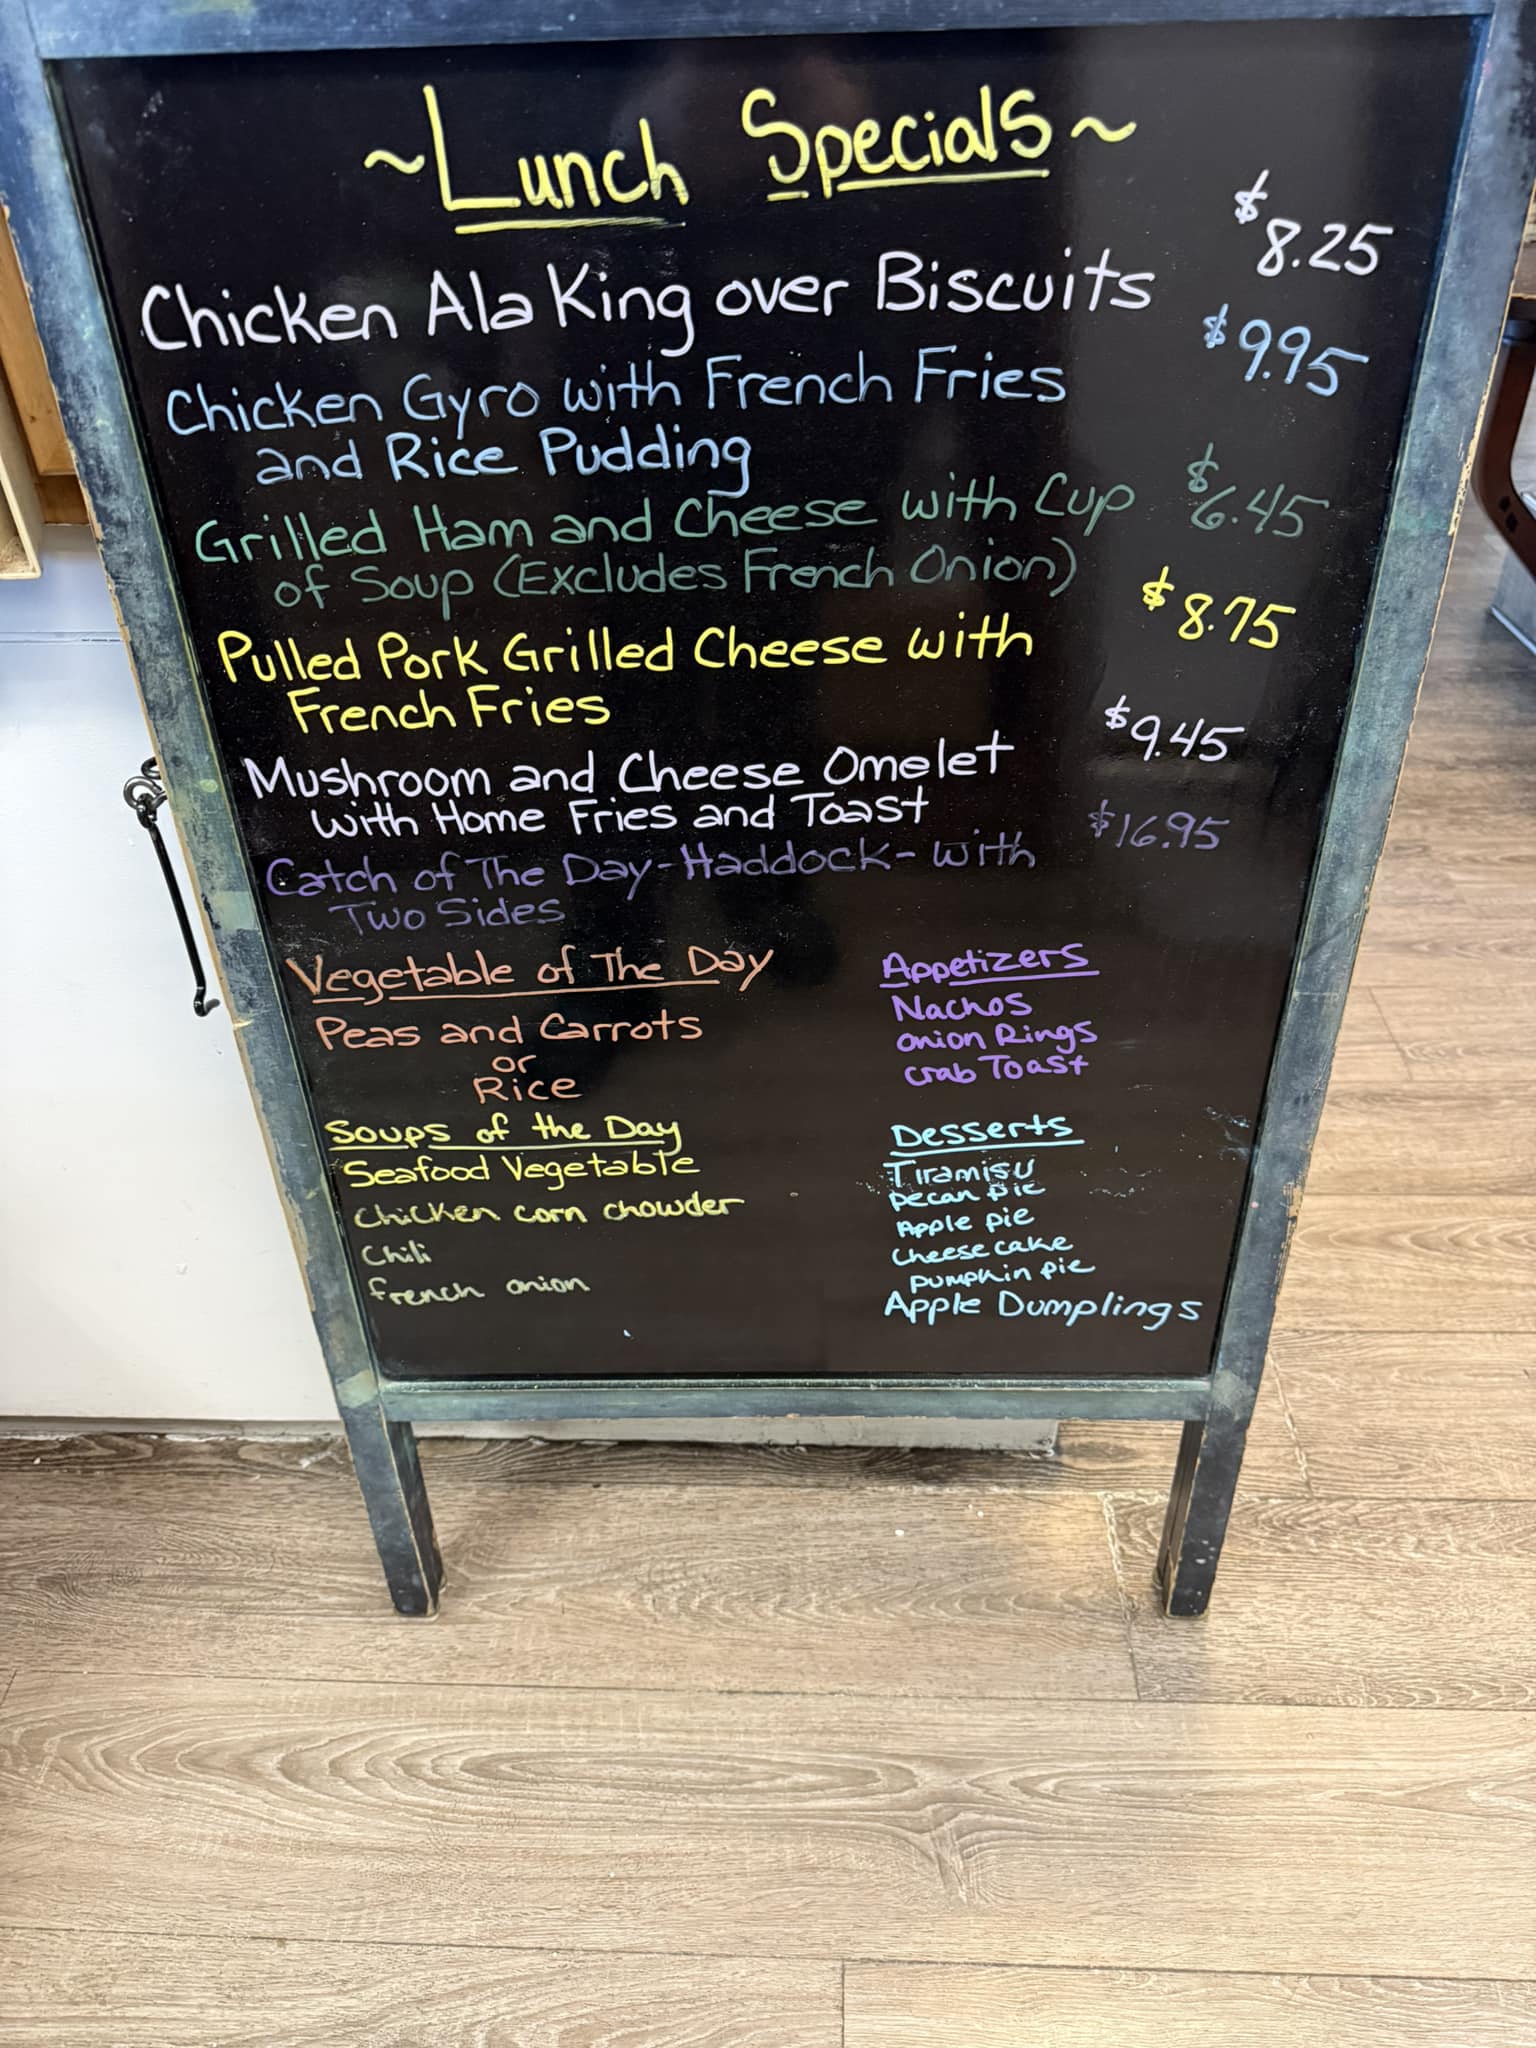 ~Lunch Specials~
Chicken Ala King over Biscuits $8.25
Chicken Gyro with French Fries $9.95
and Rice Pudding
Grilled Ham and Cheese with Cup $6.45
of Soup (Excludes French Onion)
Pulled Pork Grilled Cheese with $8.75
French Fries
Mushroom and Cheese Omelet $9.45
with Home Fries and Toast
Catch of The Day-Haddock-with $16.95
Two Sides
Vegetable of The Day
Peas and Carrots
or
Rice
Appetizers
Nachos
onion Rings
crab Toast
Soups of the Day
Seafood Vegetable
chicken corn chowder
Chili
french onion
Desserts
Tiramisu
pecan pie
Apple pie
cheese cake
pumpkin pie
Apple Dumplings